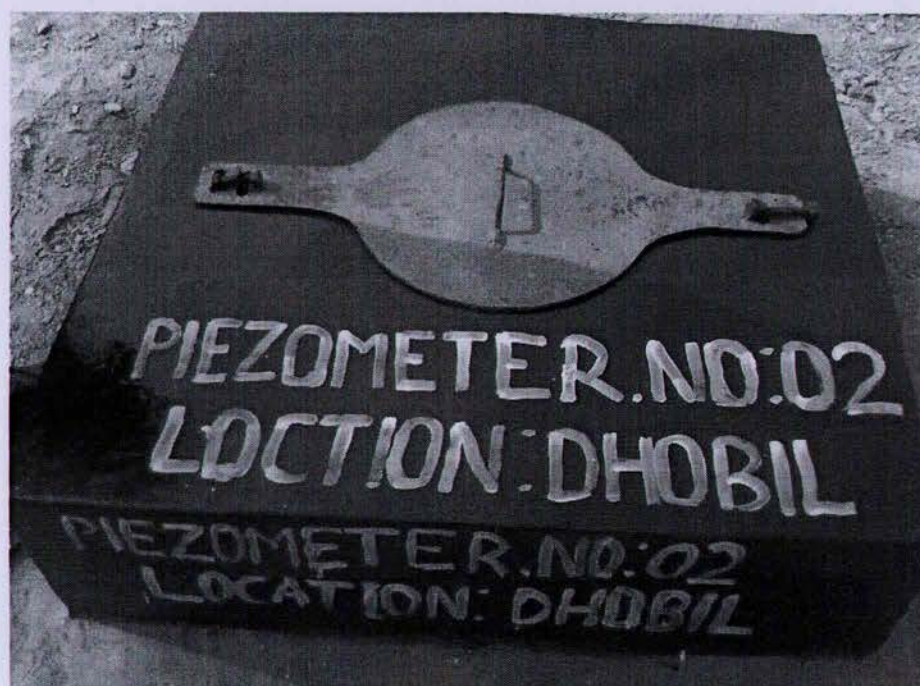 PIEZOMETER.NO:02
LOCTION:DHOBIL
PIEZOMETER.NO:02
LOCATION: DHOBIL